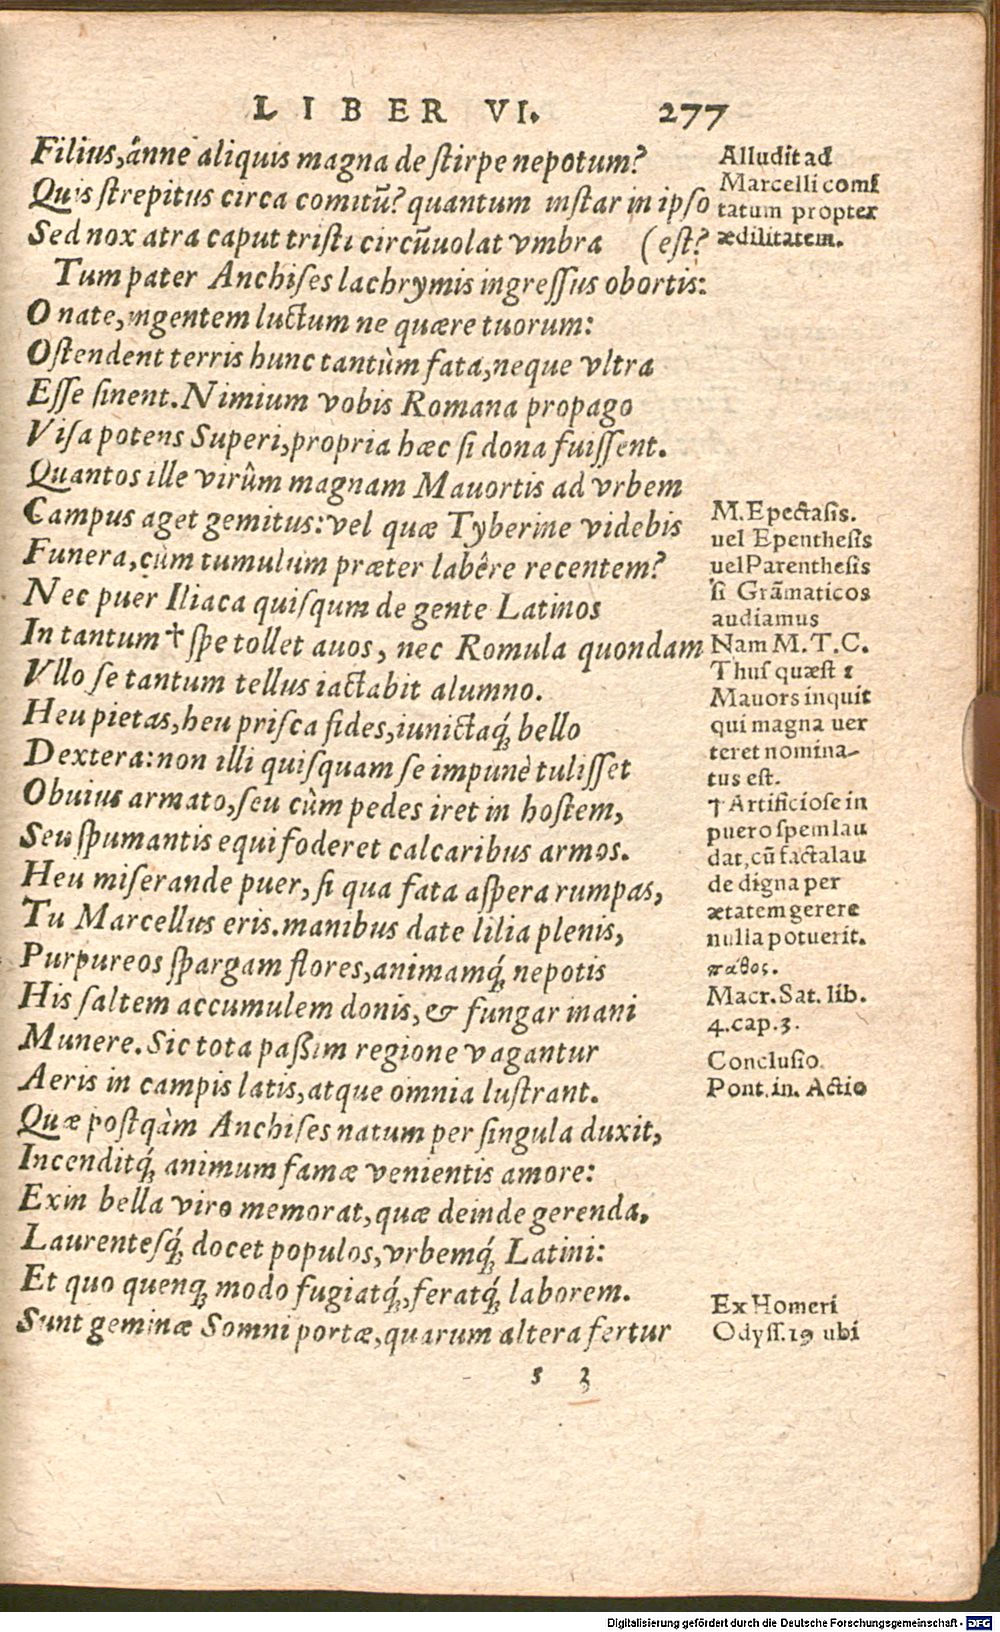 LIBER VI. 277
Filius, ânne aliquis magna de ſtirpe nepotum?
Quis ſtrepitus circa comitũ? quantum inſtar in ipſo
Sed nox atra caput triſti circũuolat vmbra (eſt?
Tum pater Anchiſes lachrymis ingreſſus obortis:
O nate, ingentem luctum ne quære tuorum:
Oſtendent terris hunc tantùm fata, neque vltra
Eſſe ſinent. Nimium vobis Romana propago
Viſa potens Superi, propria hæc ſi dona fuiſſent.
Quantos ille virûm magnam Mauortis ad vrbem
Campus aget gemitus: vel quæ Tyberine videbis
Funera, cùm tumulum præter labêre recentem?
Nec puer Iliaca quiſqum de gente Latinos
In tantum † ſpe tollet auos, nec Romula quondam
Vllo ſe tantum tellus iactabit alumno.
Heu pietas, heu priſca fides, iunictaq́ꝫ bello
Dextera: non illi quiſquam ſe impunè tuliſſet
Obuius armato, ſeu cùm pedes iret in hoſtem,
Seu ſpumantis equi foderet calcaribus armos.
Heu miſerande puer, ſi qua fata aſpera rumpas,
Tu Marcellus eris. manibus date lilia plenis,
Purpureos ſpargam flores, animamq́ꝫ nepotis
His ſaltem accumulem donis, & fungar inani
Munere. Sic tota paßim regione vagantur
Aeris in campis latis, atque omnia luſtrant.
Quæ poſtqàm Anchiſes natum per ſingula duxit,
Incenditq́ꝫ animum famæ venientis amore:
Exin bella viro memorat, quæ deinde gerenda,
Laurenteſq́ꝫ docet populos, vrbemq́ꝫ Latini:
Et quo quenqꝫ modo fugiatq́ꝫ, feratq́ꝫ laborem.
Sunt geminæ Somni portæ, quarum altera fertur
s 3
Alludit ad
Marcelli comi
tatum propter
ædilitatem.
M. Epectasis.
uel Epenthesis
uel Parenthesis
si Grãmaticos
audiamus
Nam M. T. C.
Thuſ quæſt 1
Mauors inquit
qui magna uer
teret nomina-
tus est.
† Artificiose in
puero spem lau
dat, cũ facta lau
de digna per
ætatem gerere
nulla potuerit.
πάθος.
Macr. Sat. lib.
4. cap. 3.
Conclusio.
Pont. in. Actio
Ex Homeri
Odyſſ. 19 ubi
Digitalisierung gefördert durch die Deutsche Forschungsgemeinschaft - DFG